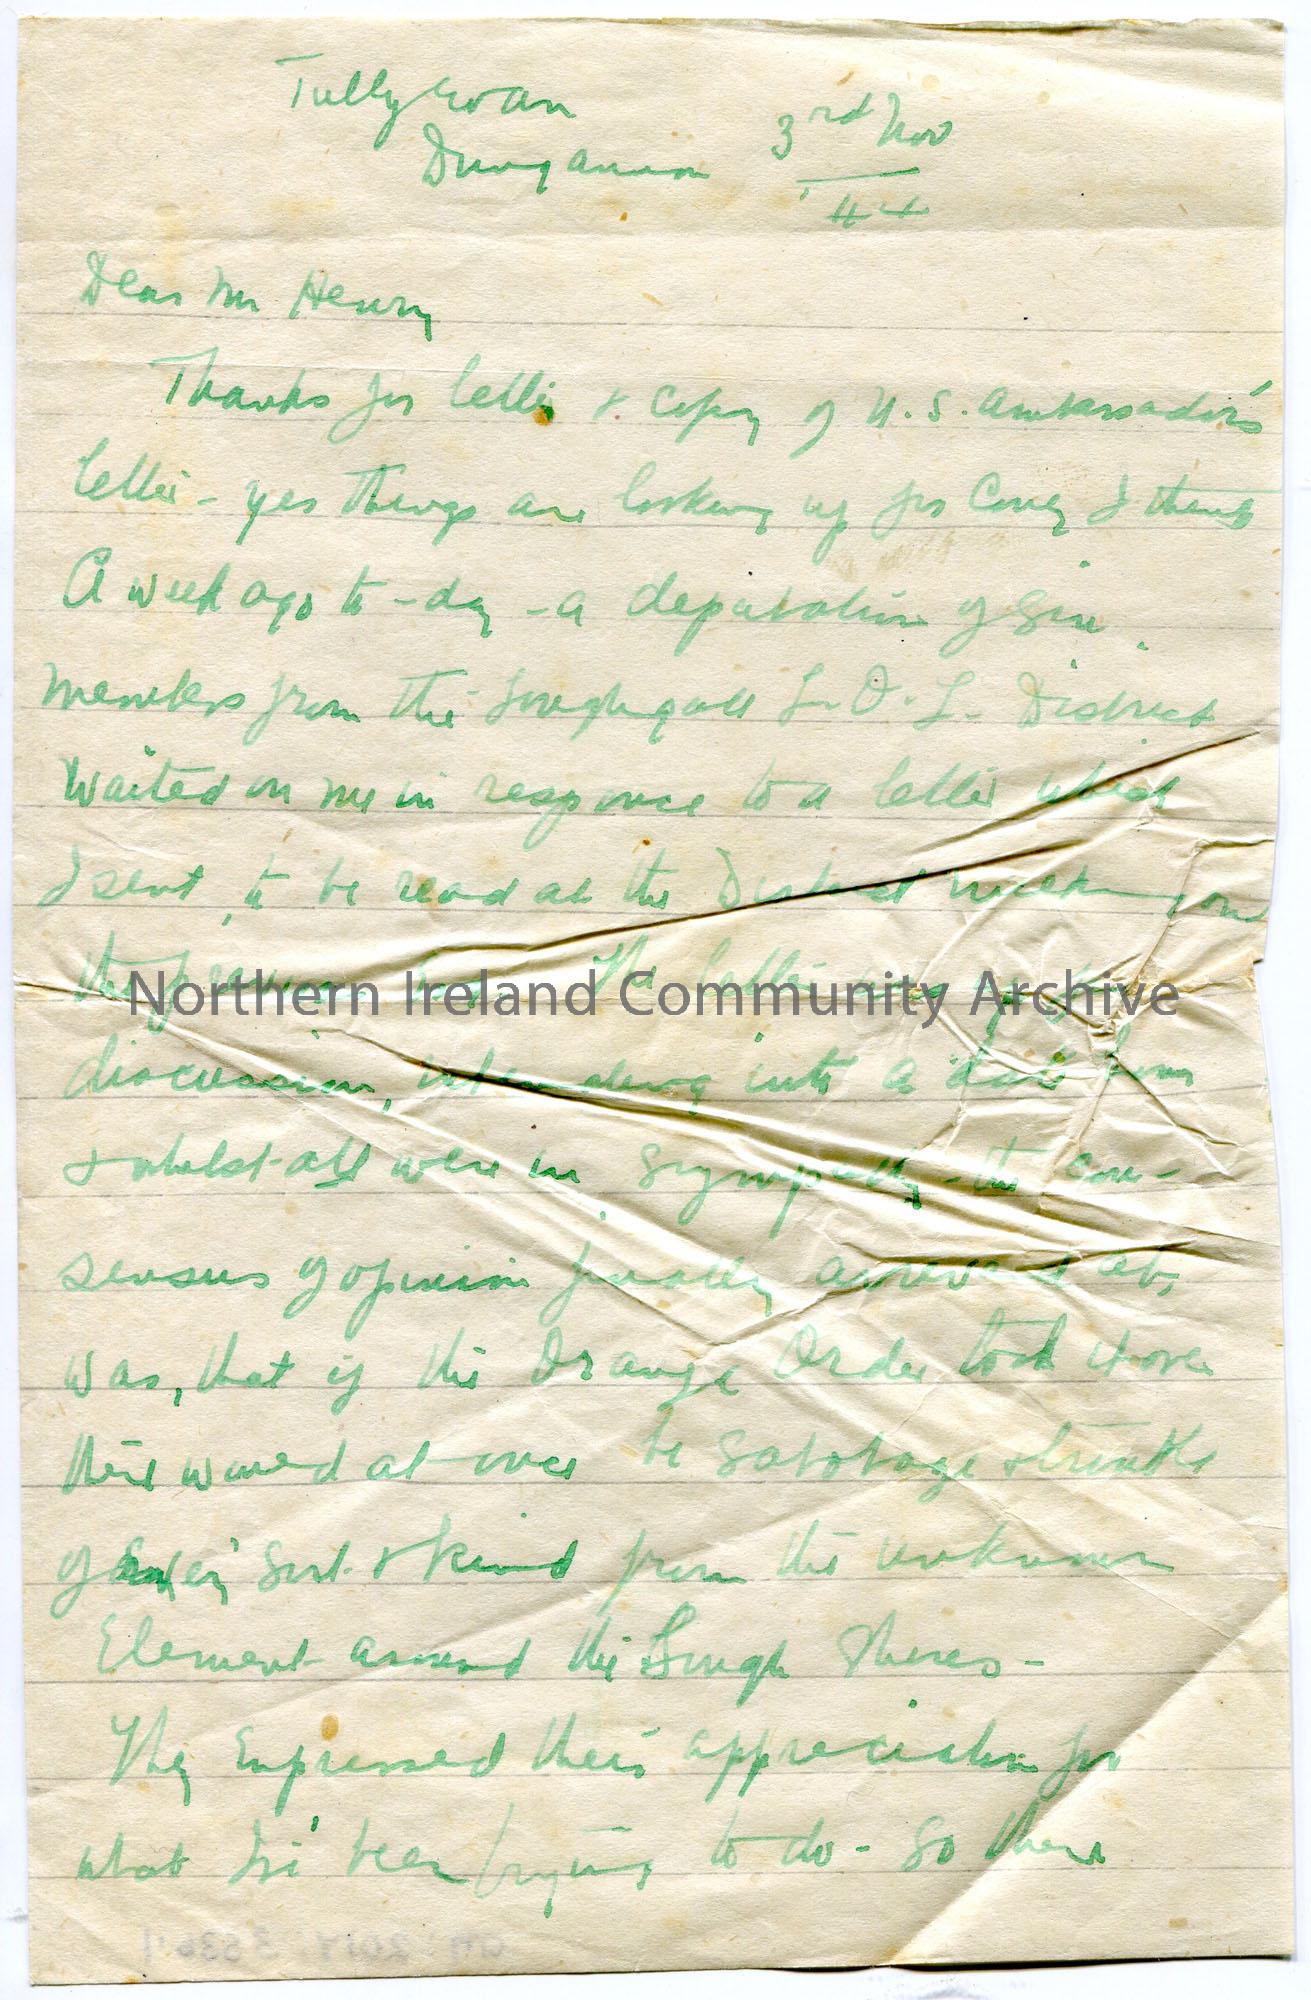 Tullyroan
Dungannon 3rd Nov
44
Dear Mr Henry
Thanks for letter & copy of U.S. Ambassador's
letter - yes things are looking up for Coney I think
A week ago to-day - a deputation of six
members from the Loughgall L.O.L. District
waited on me in response to a letter which
I sent, to be read at the District meeting on
the previous The letter
discussion, extending into a date from
& whilst all were in sympathy - the con-
sensus of opinion finally arrived at,
was, that if the Orange Order took it over
there would at once be sabotage & trouble
of every sort & kind from the unknown
Element around the Lough Shores -
They Expressed their appreciation for
what I've been trying to do - So there
Northern Ireland Community Archive